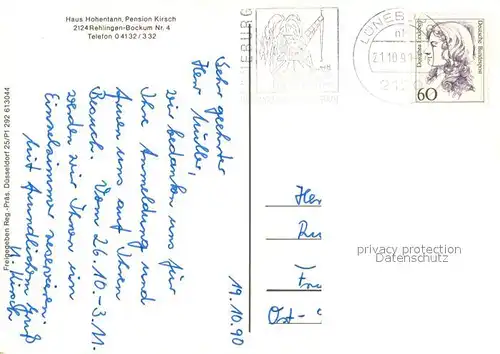 Haus Hohentann, Pension Kirsch
2124 Rehlingen-Bockum Nr. 4
Telefon 0 41 32 / 3 32
Freigegeben Reg.-Präs. Düsseldorf 25/P1 292 613044
19.10.90
Sehr geehrter
Herr Müller,
wir bedanken uns für
Ihre Anmeldung und
freuen uns auf Ihren
Besuch. Vom 26.10.-3.11.
werden wir Ihnen ein
Einzelzimmer reservieren.
Mit freundlichem Gruß
Kirsch
LÜNEB
21.10.9
212
Deutsche Bundespost
60
Her
Ost-
privacy protection
Datenschutz